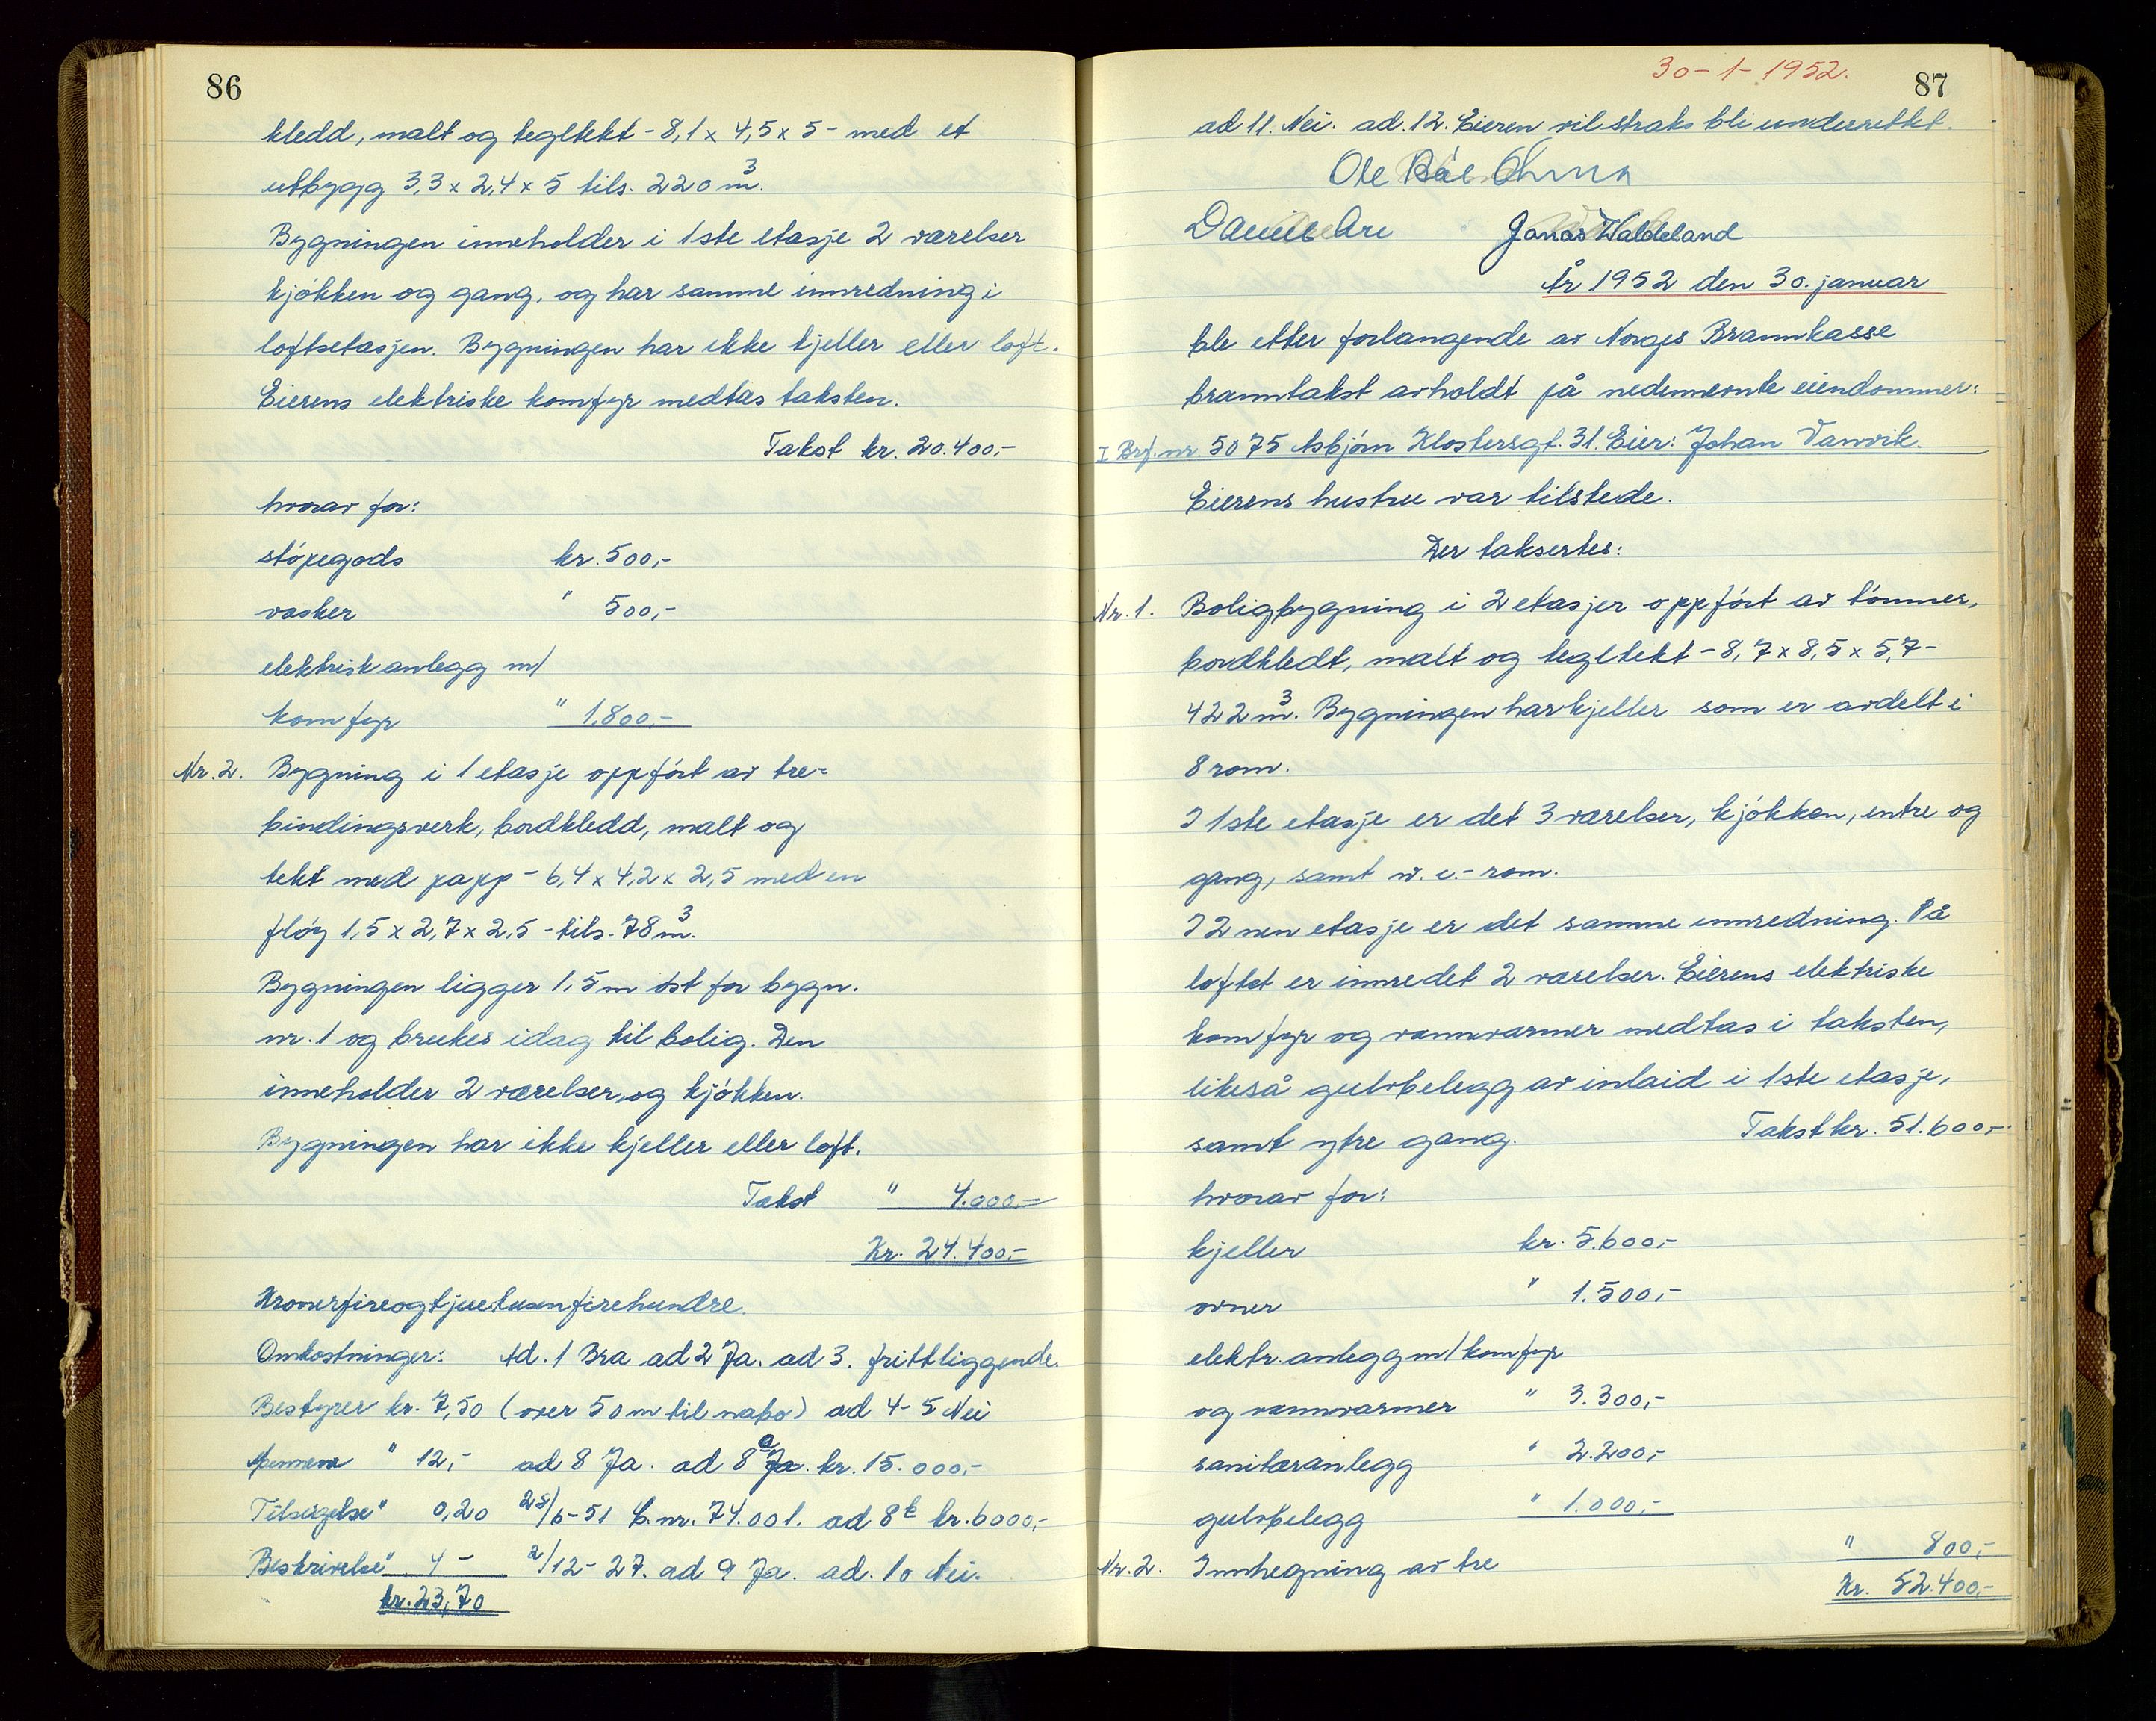 86
kledd, malt og tegltekt - 8,1 x 4,5 x 5 - med et
utbygg 3,3 x 2,4 x 5 tils. 220 m³.
Bygningen inneholder i 1ste etasje 2 værelser
kjøkken og gang, og har samme innredning i
loftsetasjen. Bygningen har ikke kjeller eller loft.
Eierens elektriske komfyr medtas taksten.
Takst kr. 20.400,-
hvorav for:
støpegods kr. 500,-
vasker " 500,-
elektrisk anlegg m/
komfyr " 1.800,-
Nr. 2. Bygning i 1 etasje oppført av tre=
bindingsverk, bordkledd, malt og
tekt med papp - 6,4 x 4,2 x 2,5 med en
fløy 1,5 x 2,7 x 2,5 - tils. 78 m³.
Bygningen ligger 1,5 m øst for bygn.
nr. 1 og brukes idag til bolig. Den
inneholder 2 værelser og kjøkken.
Bygningen har ikke kjeller eller loft.
Takst " 4.000,-
Kr. 24.400,-
Kronerfireogtjuetusenfirehundre.
Omkostninger: Ad. 1 Bra ad 2 Ja. ad 3. frittliggende.
Bestyrer kr. 7,50 (over 50 m til nabo) ad 4-5 Nei
Mennene " 12,- ad 8 Ja. ad 8a Ja. kr. 15.000,-
Tilsigelse " 0,20 25/6-51 b.nr. 74.001. ad 8b kr. 6000,-
Beskrivelse " 4 - 2/12-27. ad 9 Ja. ad. 10 Nei.
kr. 23,70
30-1-1952.
87
ad 11. Nei. ad. 12. Eieren vil straks bli underrettet.
Ole
Jonas Waldeland
År 1952 den 30. januar
ble etter forlangende av Norges Brannkasse
branntakst avholdt på nedennevnte eiendommer:
I Brf.nr. 5075 Asbjørn Klostersgt. 31. Eier: Johan Vanvik.
Eierens hustru var tilstede.
Der taksertes:
Nr. 1. Boligbygning i 2 etasjer oppført av tømmer,
bordkledt, malt og tegltekt - 8,7 x 8,5 x 5,7 -
422 m³. Bygningen har kjeller som er avdelt i
8 rom.
I 1ste etasje er det 3 værelser, kjøkken, entre og
gang, samt w.c.-rom.
I 2nen etasje er det samme innredning. På
loftet er innredet 2 værelser. Eierens elektriske
komfyr og vannvarmer medtas i taksten,
likeså gulvbelegg av inlaid i 1ste etasje,
samt ytre gang. Takst kr. 51.600,-
hvorav for:
kjeller kr. 5.600,-
ovner " 1.500,-
elektr. anlegg m/ komfyr
og vannvarmer " 3.300,-
sanitæranlegg " 2.200,-
gulvbelegg " 1.000,-
Nr. 2. Innhegning av tre " 800,-
Kr. 52.400,-